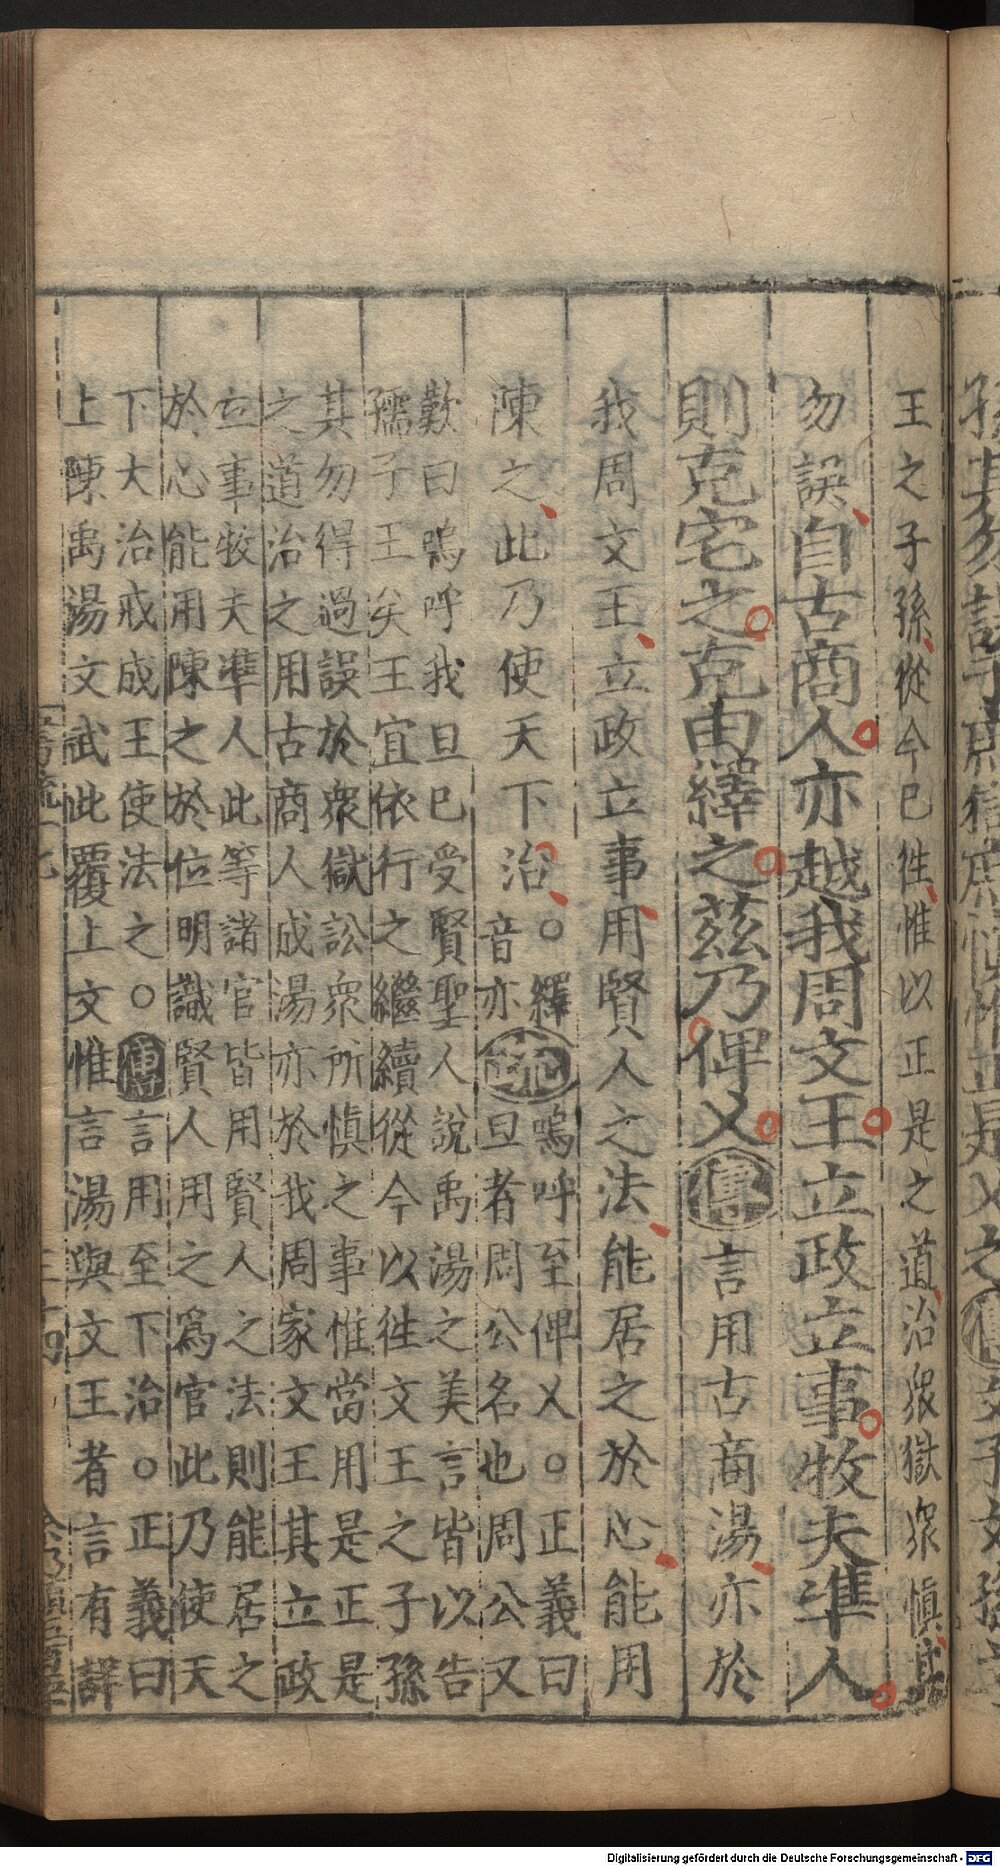 王之子孫從今已徃惟以正是之道治衆獄衆慎其
勿誤自古商人亦越我周文王立政立事牧夫準人
則克宅之克由繹之茲乃俾乂傳言用古商湯亦於
我周文王立政立事用賢人之法能居之於心能用
陳之此乃使天下治○繹
音亦
疏嗚呼至俾乂○正義曰
旦者周公名也周公又
歎曰嗚呼我旦已受賢聖人說禹湯之美言皆以告
孺子王矣王宜依行之繼續從今以徃文王之子孫
其勿得過誤於衆獄訟衆所慎之事惟當用是正是
之道治之用古商人成湯亦於我周家文王其立政
立事牧夫準人此等諸官皆用賢人之法則能居之
於心能用陳之於位明識賢人用之爲官此乃使天
下大治戒成王使法之○傳言用至下治○正義曰
上陳禹湯文武此覆上文惟言湯與文王者言有詳
Digitalisierung gefördert durch die Deutsche Forschungsgemeinschaft - DFG